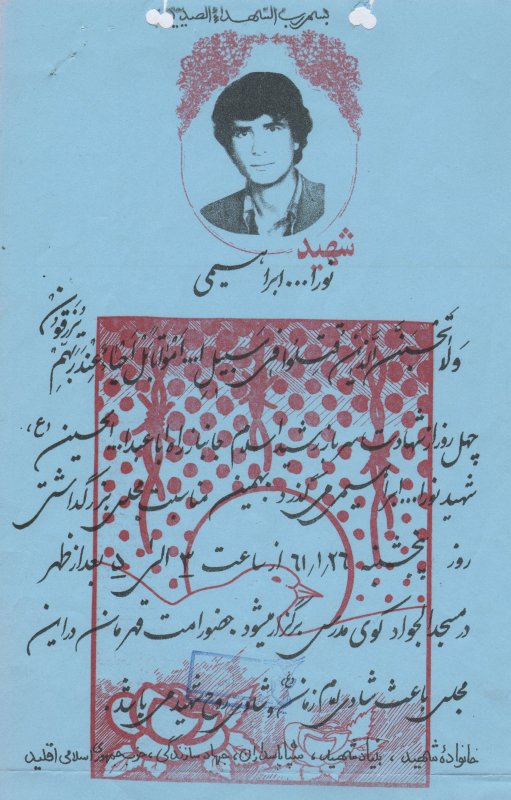 بسم رب الشهداء و الصدیقین
شهید
نورا... ابراهیمی
ولا تحسبن الذین قتلوا فی سبیل ا... امواتا بل احیاء عند ربهم یرزقون
چهل روز از شهادت سرباز رشید اسلام جانباز راه ابا عبدا... الحسین (ع)،
شهید نورا... ابراهیمی میگذرد بهمین مناسبت مجلس بزرگداشتی
روز پنجشنبه ۶۱/۱/۲۶ از ساعت ۳ الی ۵ بعد از ظهر
در مسجد الجواد کوی مدرس برگزار میشود. حضور امت قهرمان در این
مجلس باعث شادی امام زمان (عج) و شادی روح شهید می باشد.
خانواده شهید، بنیاد شهید، سپاه پاسداران، جهاد سازندگی، حزب جمهوری اسلامی اقلید